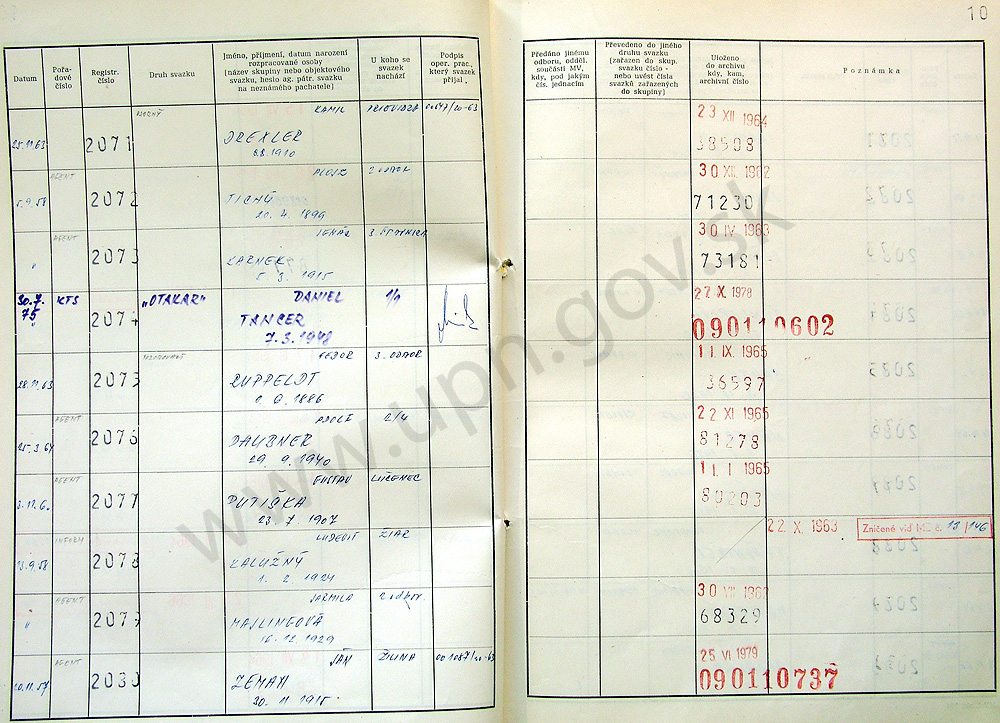 10
Datum
Pořa-
dové
číslo
Registr.
číslo
Druh svazku
Jméno, příjmení, datum narození
rozpracované osoby
(název skupiny nebo objektového
svazku, heslo ag. pátr. svazku
na neznámého pachatele)
U koho se
svazek
nachází
Podpis
oper. prac.,
který svazek
přijal
Předáno jinému
odboru, odděl.
součásti MV,
kdy, pod jakým
čís. jednacím
Převedeno do jiného
druhu svazku
(zařazen do skup.
svazku číslo -
nebo uvést čísla
svazků zařazených
do skupiny)
Uloženo
do archivu
kdy, kam,
archivní číslo
Poznámka
KAMIL PRIEVIDZA
25.11.63 2071 DREXLER
8.8.1910
23 XII 1964
38508
AGENT ALOJZ 2 ODBOR
5.9.58 2072 TICHÝ
20. 4. 1896
30 XII. 1962
71230
AGENT IGNÁC
" 2073
5. 3. 1915
30 IV 1963
73181
30.7. KTS „OTAKAR" DANIEL 1/1
75 2074 TANCER
" 7. 3. 1948
27 X. 1978
090110602
FEDOR 3. ODBOR
28.11.63 2075 RUPPELDT
1886
11. IX. 1965
36597
AGENT ADOLF 2/4
25.3.64 2076 DAUBNER
29. 9. 1940
22 XI 1965
81278
AGENT GUSTAV LUČENEC
2077 PUTIŠKA
23. 7. 1907
11. I 1965
80203
INFORM ĽUDEVÍT ŽIAR
13.9.58 2078 KALUŽNÝ
1. 2. 1924
22 X. 1963
Zničené viď ME č. 13/146
AGENT JARMILA 2 odbor
" 2079 MAJLINGOVÁ
16. 12. 1929
30 VII 1962
68329
AGENT JÁN ŽILINA
20.11.57 2080 ZEMAN
30. 11. 1915
25 VI 1979
090110737
www.upn.gov.sk